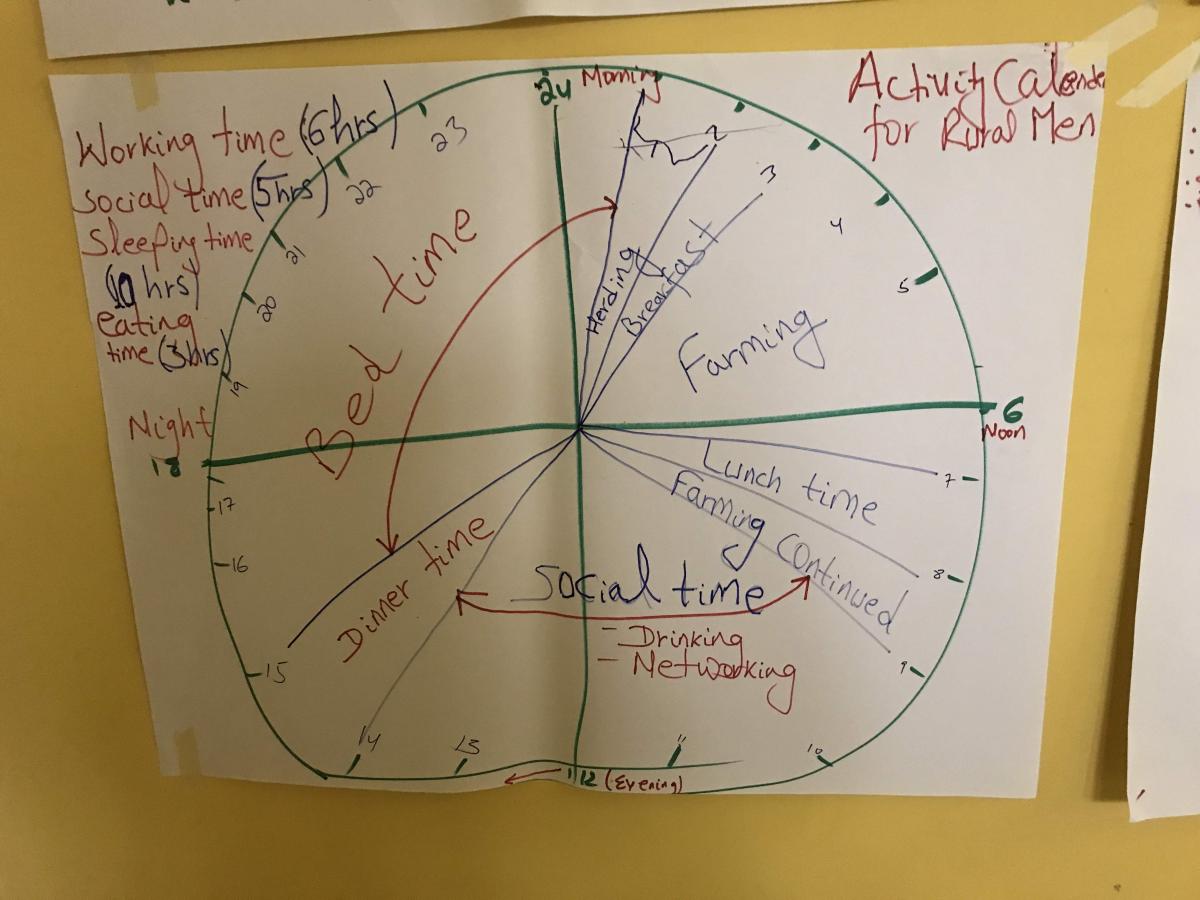 Activity Calender
for Rural Men
Working time (6 hrs)
Social time (5 hrs)
Sleeping time
(10 hrs)
eating
time (3 hrs)
24
Morning
2
3
4
5
6
Noon
7
8
9
10
11
12 (Evening)
13
14
15
16
17
18
Night
19
20
21
22
23
Herding
Breakfast
Farming
Lunch time
Farming Continued
Social time
- Drinking
- Networking
Dinner time
Bed time